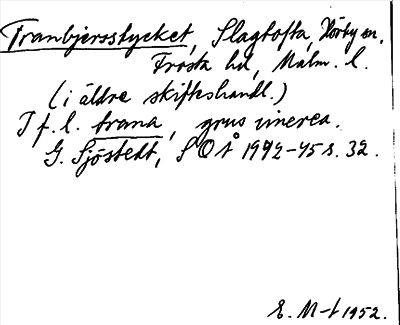 Tranbjersstycket, Slagtofta, Hörby sn,
Frosta hd, Malm. l.
(i äldre skifteshandl.)
I f. l. trana, grus cinerea.
G. Sjöstedt, SOÅ 1942-45 s. 32.
E. M-t 1952.